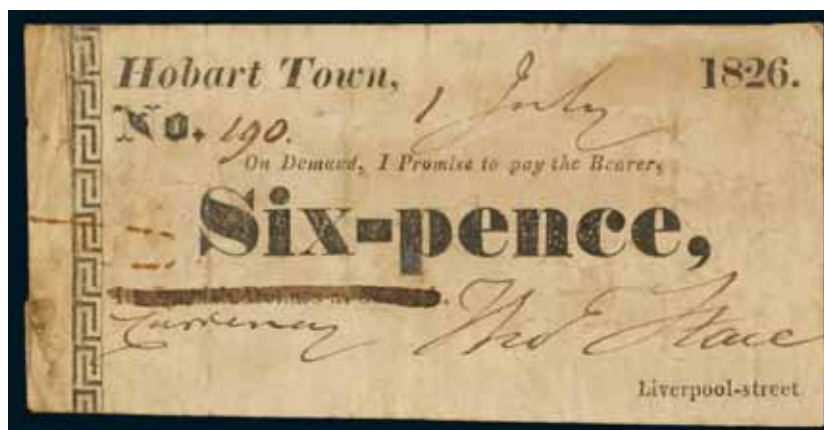 Hobart Town, 1 July 1826.
No. 190.
On Demand, I Promise to pay the Bearer,
Six-pence,
Currency Tho^s
Liverpool-street